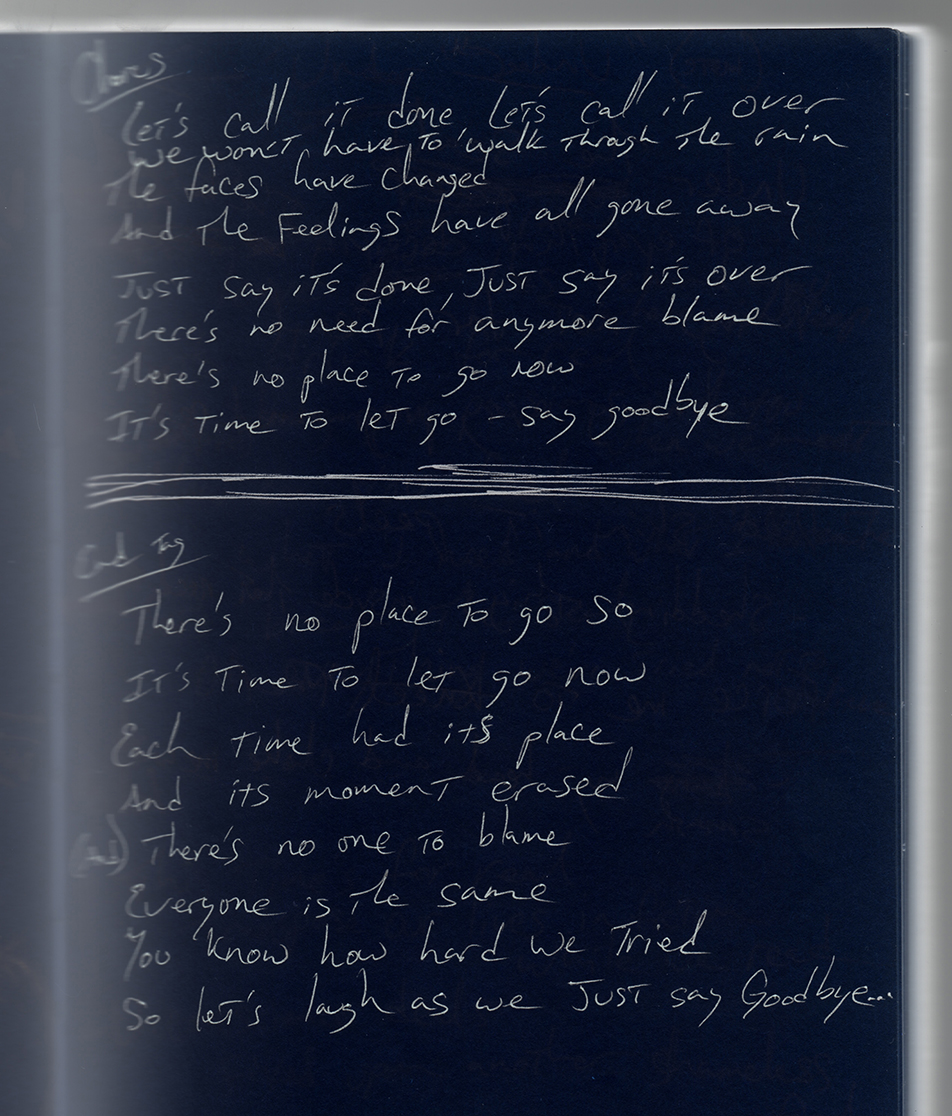 Chorus
Let's call it done Let's call it over
We won't have to walk through the rain
The faces have changed
And the Feelings have all gone away
Just say it's done, Just say it's over
There's no need for anymore blame
There's no place to go now
It's time to let go - say goodbye
End Tag
There's no place to go so
It's time to let go now
Each time had its place
And its moment erased
(And) There's no one to blame
Everyone is the same
You know how hard we tried
So let's laugh as we just say Goodbye...